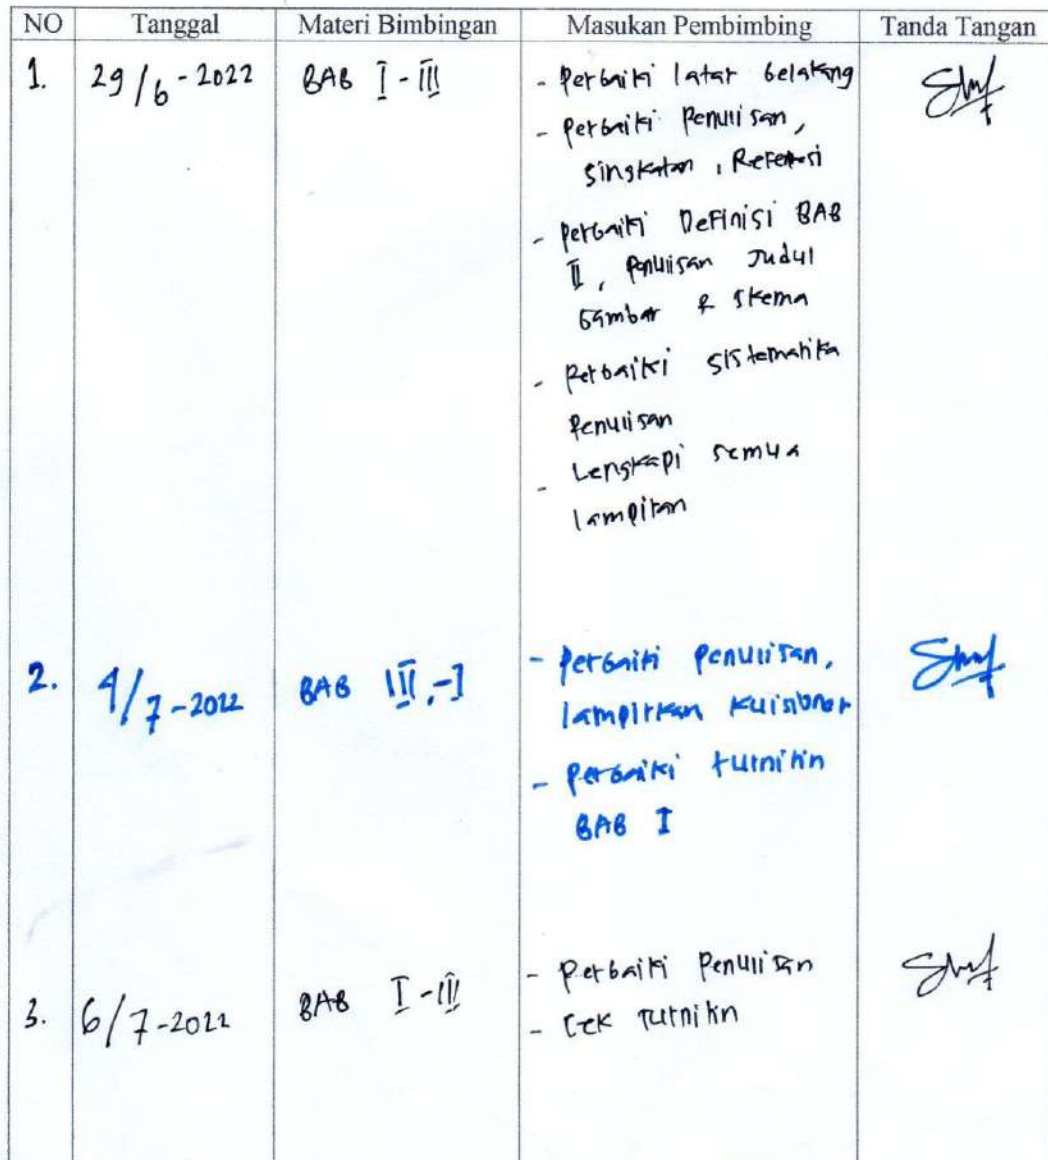 NO Tanggal Materi Bimbingan Masukan Pembimbing Tanda Tangan
1. 29/6-2022 BAB I - III - Perbaiki latar belakang
- Perbaiki Penulisan,
singkatan, Referensi
- Perbaiki Definisi BAB
II, Penulisan Judul
Gambar & Skema
- Perbaiki Sistematika
Penulisan
- Lengkapi semua
lampiran
- Perbaiki Penulisan,
2. 4/7-2022 BAB III,-I lampirkan kuisioner
- Perbaiki turnitin
BAB I
- Perbaiki Penulisan
3. 6/7-2022 BAB I - III - Cek turnitin